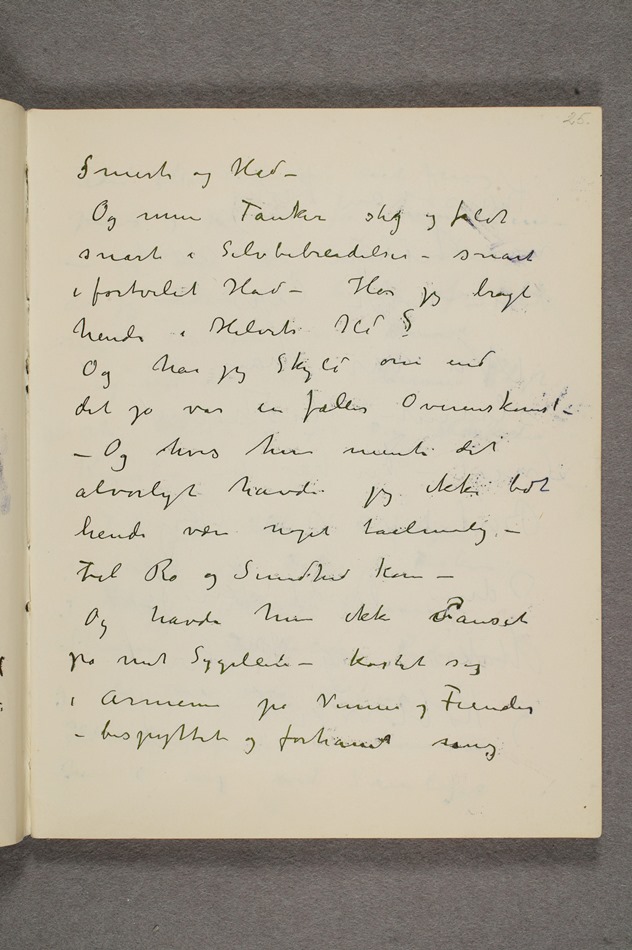 25.
Smerte og Had –
Og mine Tanker steg og faldt
snart i Selvbebreidelser – snart
i fortvilet Had – Har jeg bragt
hende i Helvets Ild ?
Og har jeg Skyld om end
det jo var en fælles Overenskomst –
– Og hvis hun mente det
alvorligt havde jeg ikke bedt
hende være noget taalmodig –
til Ro og Sundhed kom –
Og havde hun ikke Danset
på mit Sygeleie – kastet sig
i Armene på Venner og Fiender
– bespyttet og forhaanet mig